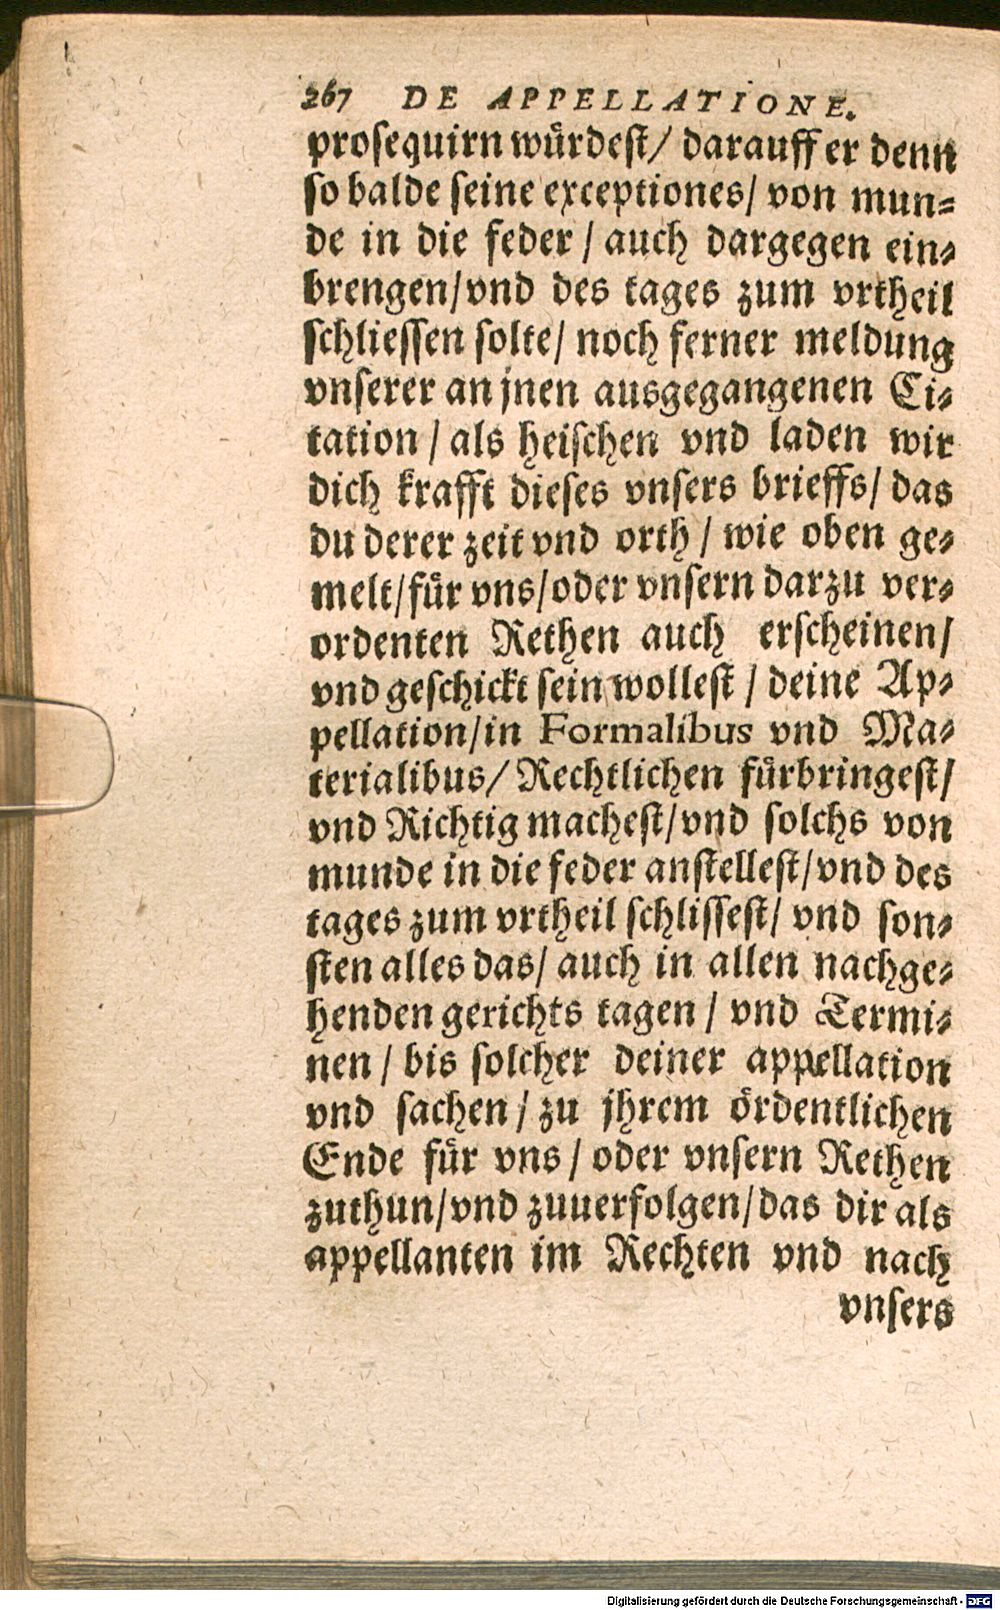 267 DE APPELLATIONE.
proſequirn wuͤrdeſt/ darauff er denn
ſo balde ſeine exceptiones/ von mun⸗
de in die feder / auch dargegen ein⸗
brengen/vnd des tages zum vrtheil
ſchlieſſen ſolte/ noch ferner meldung
vnſerer an jnen ausgegangenen Ci⸗
tation / als heiſchen vnd laden wir
dich krafft dieſes vnſers brieffs/ das
du derer zeit vnd orth / wie oben ge⸗
melt/fuͤr vns/oder vnſern darzu ver⸗
ordenten Rethen auch erſcheinen/
vnd geſchickt ſein wolleſt / deine Ap⸗
pellation/in Formalibus vnd Ma⸗
terialibus/ Rechtlichen fuͤrbringeſt/
vnd Richtig macheſt/vnd ſolchs von
munde in die feder anſtelleſt/vnd des
tages zum vrtheil ſchliſſeſt/ vnd ſon⸗
ſten alles das/ auch in allen nachge⸗
henden gerichts tagen / vnd Termi⸗
nen / bis ſolcher deiner appellation
vnd ſachen / zu jhrem oͤrdentlichen
Ende fuͤr vns / oder vnſern Rethen
zuthun/vnd zuuerfolgen/das dir als
appellanten im Rechten vnd nach
vnſers
Digitalisierung gefördert durch die Deutsche Forschungsgemeinschaft - DFG